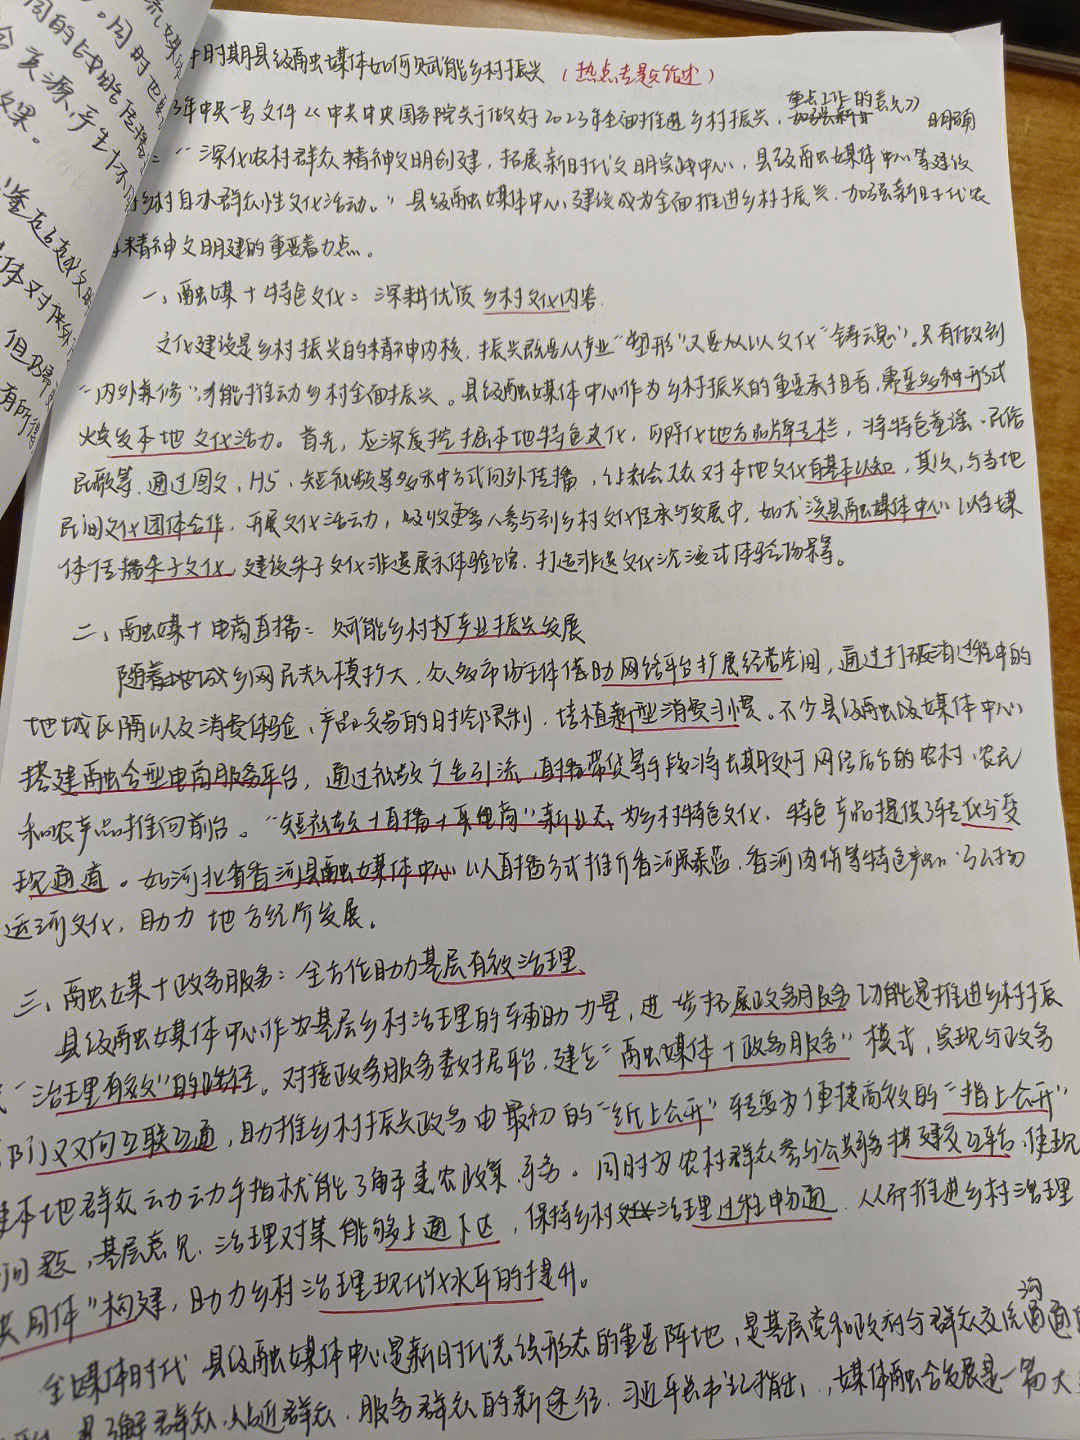 时期县级融媒体如何赋能乡村振兴 (热点专题论述)
年中央一号文件《中共中央国务院关于做好2023年全面推进乡村振兴,重点工作的意见》明确
“深化农村群众精神文明创建,拓展新时代文明实践中心,县级融媒体中心等建设
乡村自办群众性文化活动。”县级融媒体中心建设成为全面推进乡村振兴.加强新时代农
精神文明建的重要着力点。
一、融媒+特色文化:深耕优质乡村文化内容.
文化建设是乡村振兴的精神内核,振兴既要从产业“塑形”又要从以文化“铸魂”。只有做到
“内外兼修”,才能推动乡村全面振兴。县级融媒体中心作为乡村振兴的重要承担者,需要多种形式
焕发本地文化活力。首先,应深度挖掘本地特色文化,可孵化地方品牌专栏,将特色童谣、民俗
民歌等.通过图文,H5、短视频等多种方式向外传播,让社会大众对本地文化有基本认知,其次,与当地
民间文化团体合作,开展文化活动力,吸收更多人参与到乡村文化传承与发展中,如尤溪县融媒体中心以全媒
体传播朱子文化,建设朱子文化非遗展示体验馆.打造非遗文化沉浸式体验场景等。
二、融媒+电商直播:赋能乡村打产业振兴发展
随着地域乡网民规模扩大,众多市场主体借助网络平台扩展经营空间,通过打破消过程中的
地域区隔以及消费体验、产品交易的时空限制,培植新型消费习惯。不少县级融级媒体中心
搭建融合型电商服务平台,通过视频广告引流,直播带货等手段将长期处于网络后台的农村、农民
和农产品推向前台。“短视频+直播+电商”新业态为乡村特色文化、特色产品提供了转化与变
现通道。如河北省香河县融媒体中心以直播方式推介香河,香河肉饼等特色产品,弘扬
运河文化,助力地方经济发展。
三、融媒+政务服务:全方位助力基层有效治理
县级融媒体中心作为基层乡村治理的辅助力量,进一步拓展政务服务功能是推进乡村振
“治理有效”的路径。对接政务服务数据平台,建立“融媒体+政务服务”模式,实现与政务
部门双向互联互通,助推乡村振兴政务由最初的“纸上公开”转变为便捷高效的“指上公开”
本地群众动动手指就能了解惠农政策、事务。同时为农村群众参与公共事务搭建交互平台,使现
问题,基层意见.治理对策能够上通下达,保持乡村治理过程中畅通,从而推进乡村治理
共同体”构建,助力乡村治理现代化水平的提升。
全媒体时代 县级融媒体中心是新时代意识形态的重要阵地,是基层党和政府与群众交流沟通
是了解群众.贴近群众.服务群众的新途径.习近平总书记指出,媒体融合发展是一篇大